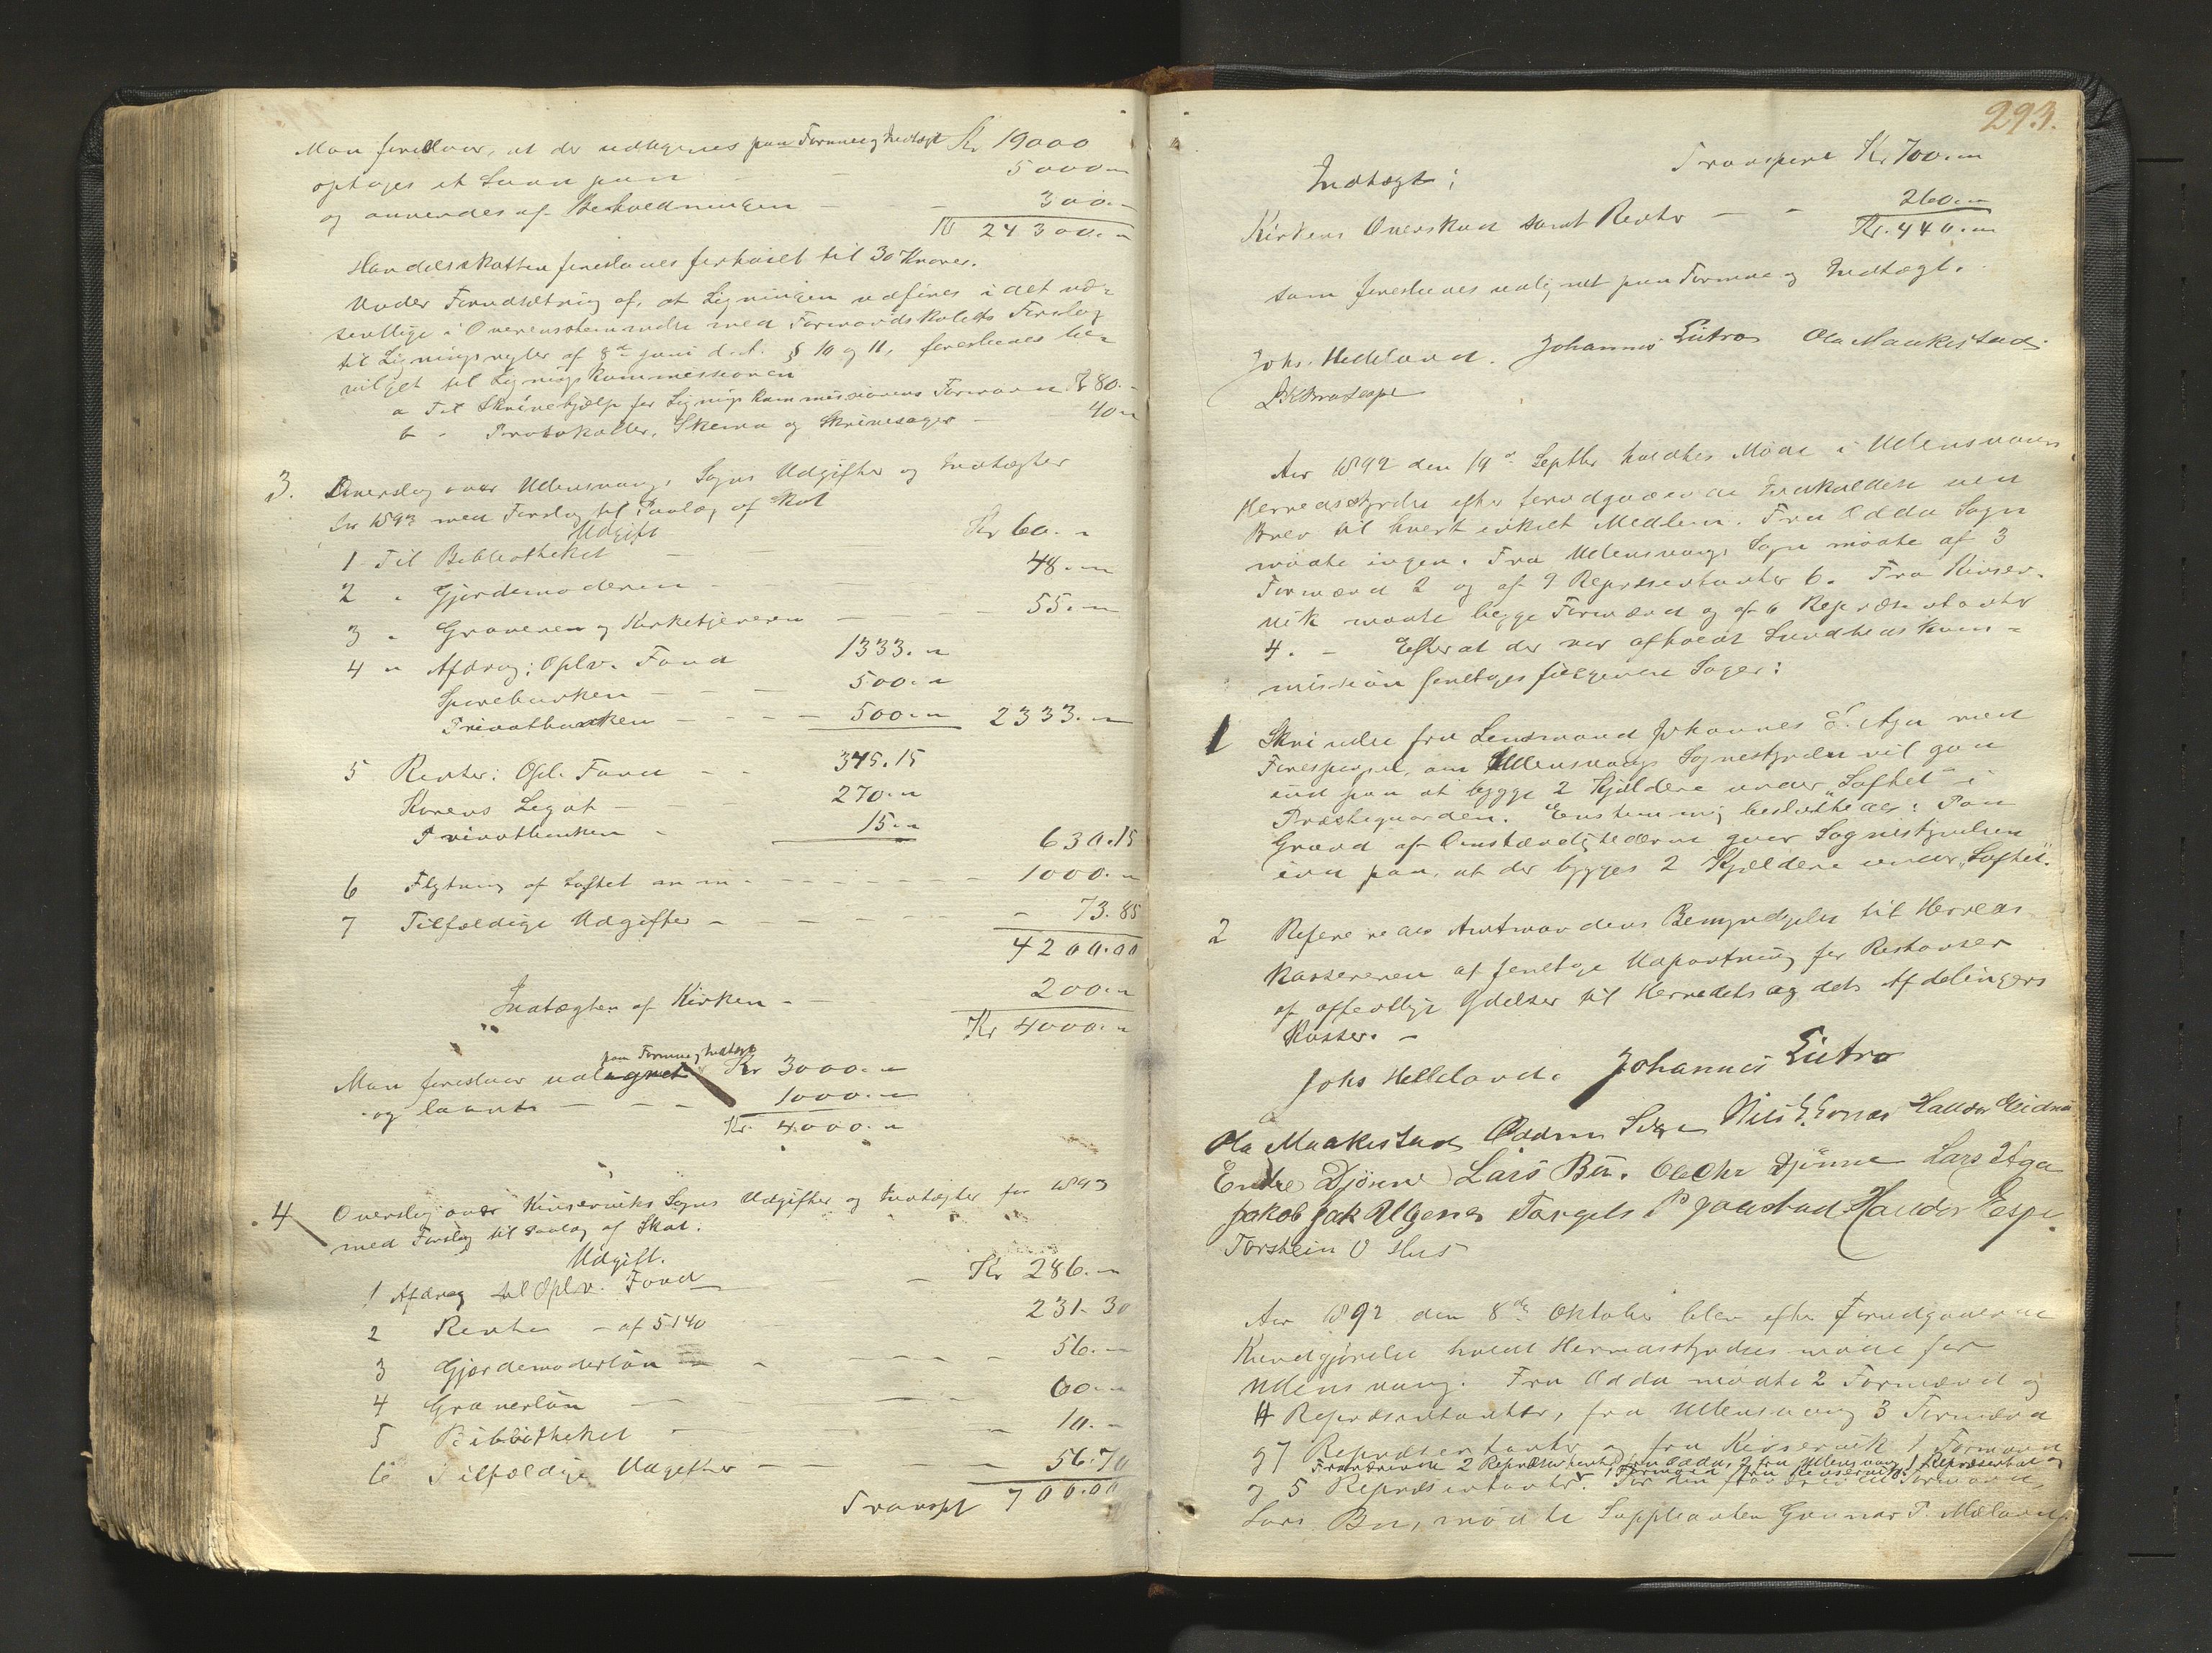 Man foreslaar, at der udlignes paa Formue og Indtægt Kr 19000
optages et Laan paa - - 5000.„
og anvendes af Beholdningen - - - 300.„
Kr 24300.„
Handelsskatten foreslaaes forhøiet til 30 Kroner.
Under Forudsætning af, at Ligningen udføres i det væ-
sentlige i Overensstemmelse med Formandskabets Forslag
til Ligningsregler af 8de Juni d. A. § 10 og 11, foreslaaes be-
vilget til Ligningskommissionen
a Til Skrivehjælp for Ligningskommissionens Formand Kr 80.-
b - Protokoller, Skema og Skrivesager - 40.„
3. Overslag over Ullensvangs Sogns Udgifter og Indtægter
for 1893 med Forslag til Paalæg af Skat
Udgift
1 Til Bibliotheket - - Kr 60.„
2 „ Gjordemoderen - - 48.„
3 „ Graveren og Kirketjeneren - - - 55.„
4 „ Afdrag: Oplv. Fond 1333.„
Sparebanken - - - 500.„
Privatbanken - - - - 500.„ 2333.„
5 Renter: Opl. Fond - - 345.15
Korens Legat - - 270.„
Privatbanken - 15.„ 630.15
6 Flytning af Loftet m m - - - - - 1000.„
7 Tilfældige Udgifter - - - - - - 73.85
4200.00
Indtægter af Kirken - 200.„
Kr 4000.„
paa Formue og Indtægt
Man foreslaar udlignet Kr 3000.„
og laant - - - 1000.„
Kr. 4000.„
4 Overslag over Kinserviks Sogns Udgifter og Indtægter for 1893
med Forslag til Paalæg af Skat.
Udgift.
1 Afdrag til Oplv. Fond - Kr 286.„
2 Renter - af 5140 231.30
3 Gjordemoderløn - - - - - 56.„
4 Graverløn - - - 60.„
5 Bibliotheket - - 10.-
6 Tilfældige Udgifter - - - - 56.70
Transpt 700.00
293.
Transport Kr. 700.„
Indtægt:
Kirkens Overskud samt Renter - - 260.„
Kr. 440.„
som foreslaaes udlignet paa Formue og Indtægt.
Johs. Helleland. Johannes Eitro Ola Maakestad.
Aar 1892 den 19de Septbr holdtes Møde i Ullensvangs
Herredsstyrelse efter forudgaaende Indkaldelse ved
Brev til hvert enkelt Medlem. Fra Odda Sogn
mødte ingen. Fra Ullensvangs Sogn mødte af 3
Formænd 2 og af 9 Repræsentanter 6. Fra Kinser-
vik mødte begge Formænd og af 6 Repræsentanter
4. - Efterat der var afholdt Sundhedskom-
mission foretoges følgende Sager:
1 Skrivelse fra Lensmand Johannes E. Aga med
Forespørgsel, om Ullensvangs Sognestyrelse vil gaa
ind paa at bygge 2 Kjældere under „Loftet" i
Præstegaarden. Enstemmig besluttedes: Paa
Grund af Omstændighederne gaar Sognestyrelsen
ind paa, at der bygges 2 Kjældere under „Loftet".
2 Refereredes Amtmandens Bemyndigelse til Herreds
kassereren at foretage Udpantning for Restanser
af offentlige Ydelser til Herredets og dets Afdelingers
Kasser. -
Johs Helleland. Johannes Eitro
Ola Maakestad Oddm Nils Haldor
Endre Djønne Lars Bu. Ola Chr Djønne Lars Aga
Jakob Jak Ulgenes Torgels P Jaastad Haldor Espe.
Torstein O Hus
Aar 1892 den 8de Oktober blev efter forudgaaende
Kundgjørelse holdt Herredsstyrelses møde for
Ullensvang. Fra Odda mødte 2 Formænd og
4 Repræsentanter, fra Ullensvang 3 Formænd
og 7 Repræsentanter og fra Kinservik 1 Formand
Fraværende 2 Repræsentanter fra Odda, 2 fra Ullensvang, 1 Repræsentant og
1 Formand fra Kinservik.
og 5 Repræsentanter. For den fraværende Formand,
Lars Bu, mødte Suppleanten Gunnar T. Mæland.